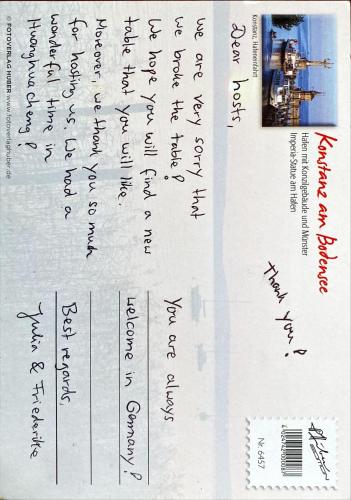 Konstanz, Hafeneinfahrt
Konstanz am Bodensee
Hafen mit Konzilgebäude und Münster
Imperia-Statue am Hafen
Thank you!
Nr. 6457
Dear hosts,
we are very sorry that
we broke the table!
We hope you will find a new
table that you will like.
Moreover, we thank you so much
for hosting us. We had a
wonderful time in
Huanghuacheng!
You are always
welcome in Germany!
Best regards,
Julia & Friederike
© FOTOVERLAG HUBER www.fotoverlaghuber.de